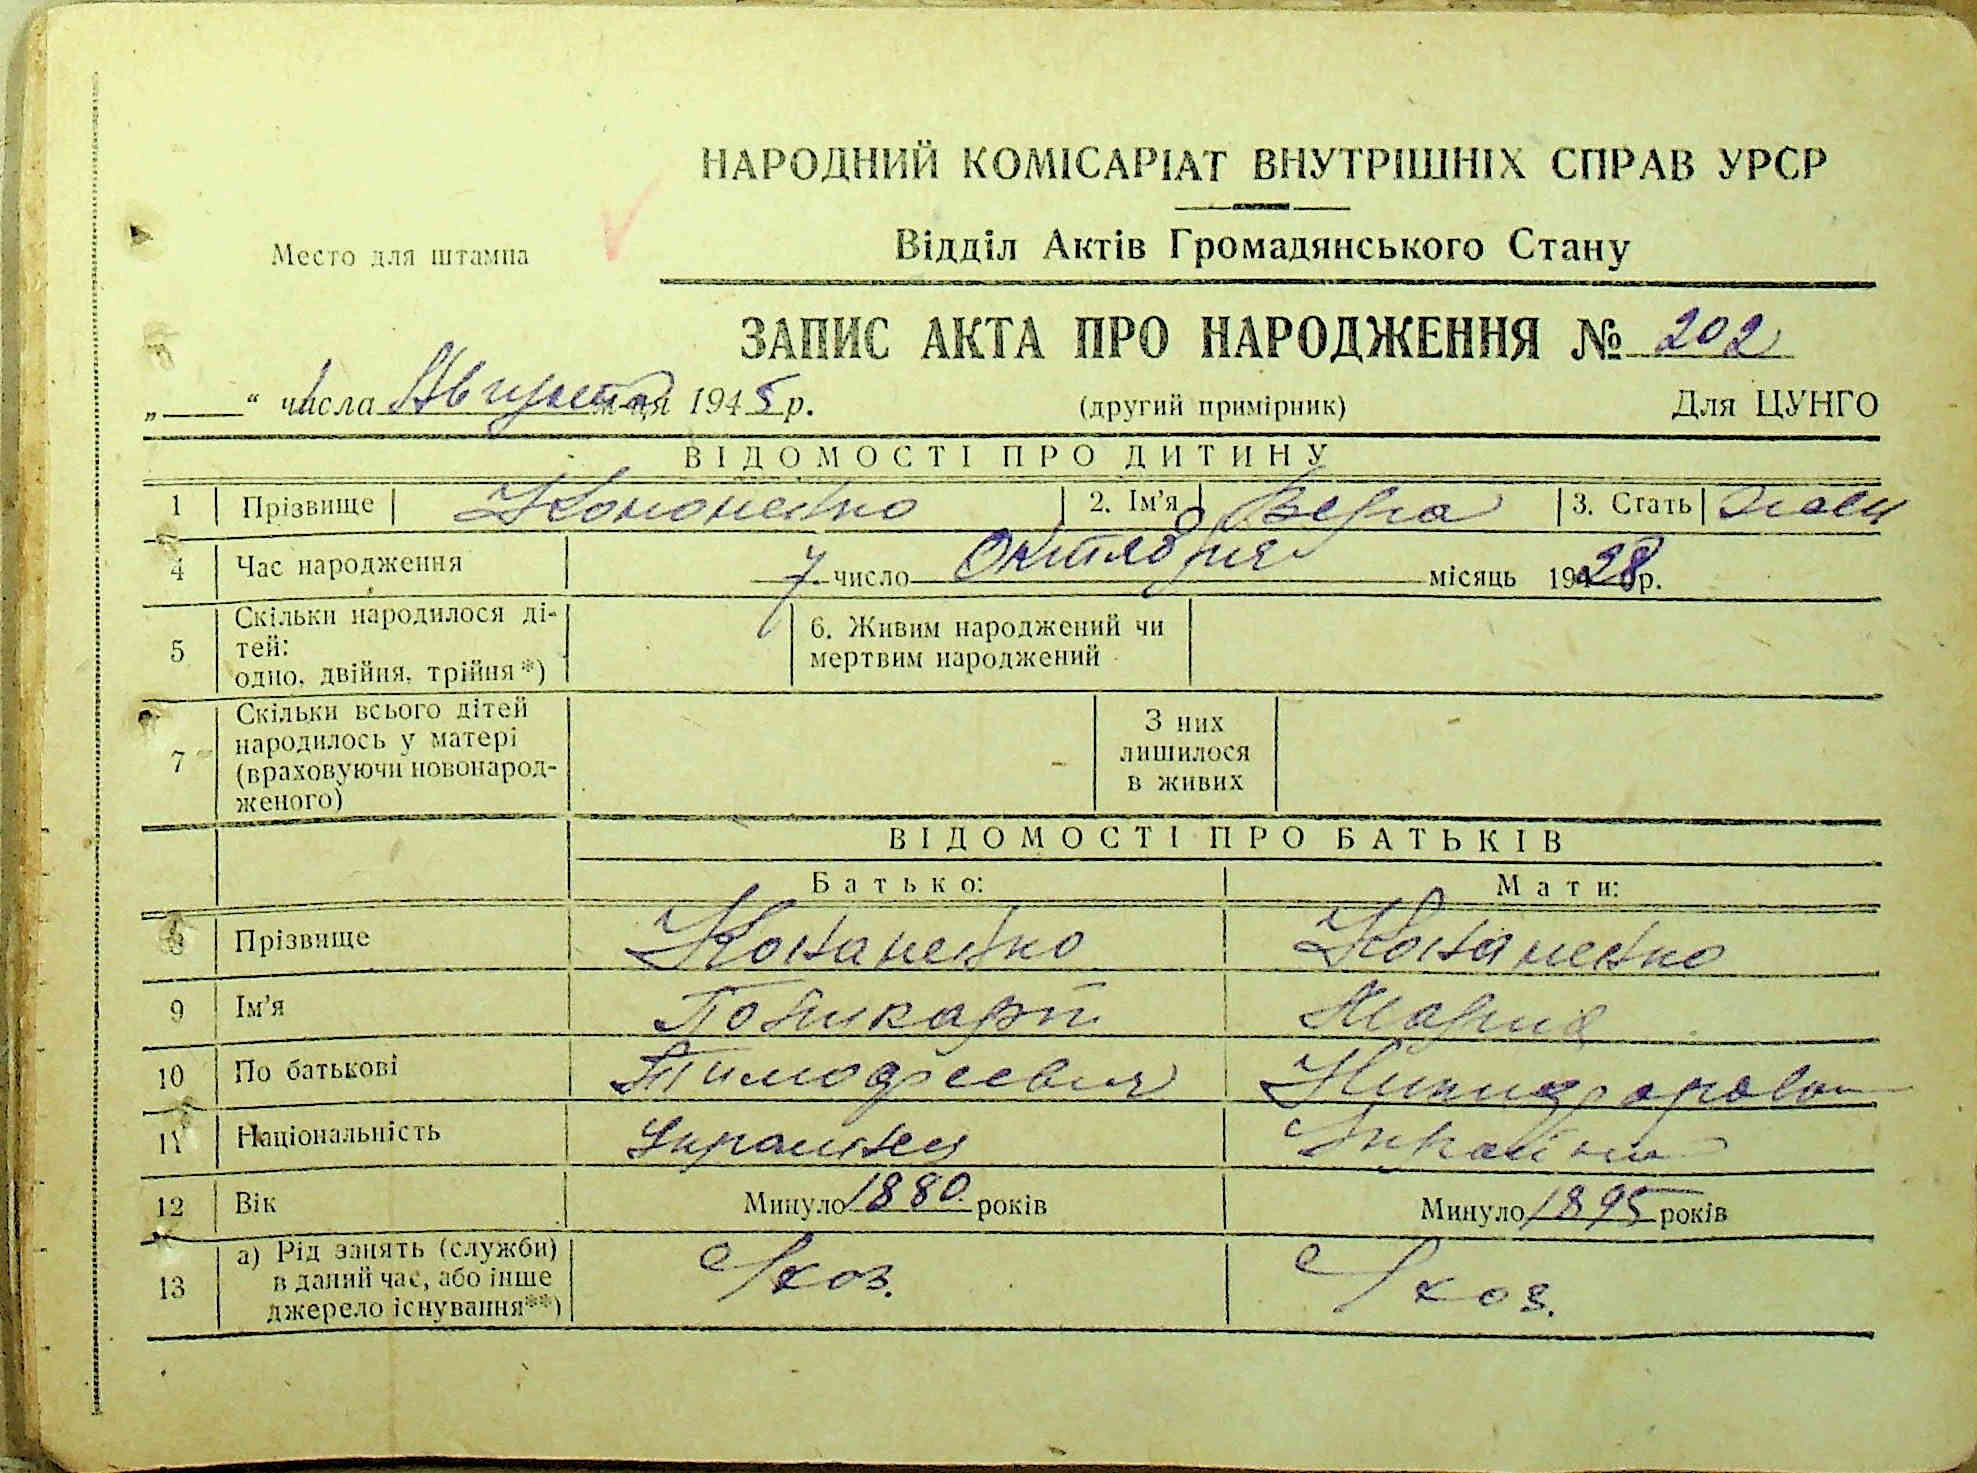 НАРОДНИЙ КОМІСАРІАТ ВНУТРІШНІХ СПРАВ УРСР
Место для штампа
Відділ Актів Громадянського Стану
ЗАПИС АКТА ПРО НАРОДЖЕННЯ № 202
„ “ числа Августа м-ця 1945 р. (другий примірник) Для ЦУНГО
ВІДОМОСТІ ПРО ДИТИНУ
1 Прізвище Кононенко 2. Ім'я Вера 3. Стать жен
4 Час народження 7 число Октября місяць 1928 р.
5 Скільки народилося ді-
тей:
одно, двійня, трійня*)
6. Живим народжений чи
мертвим народжений
7 Скільки всього дітей
народилось у матері
(враховуючи новонарод-
женого)
З них
лишилося
в живих
ВІДОМОСТІ ПРО БАТЬКІВ
Батько: Мати:
8 Прізвище Кананенко Кананенко
9 Ім'я Поликарп Мария
10 По батькові Тимофеевич
11 Національність
12 Вік Минуло 1880 років Минуло 1895 років
13 а) Рід занять (служби)
в даний час, або інше
джерело існування**)
С/хоз. С/хоз.